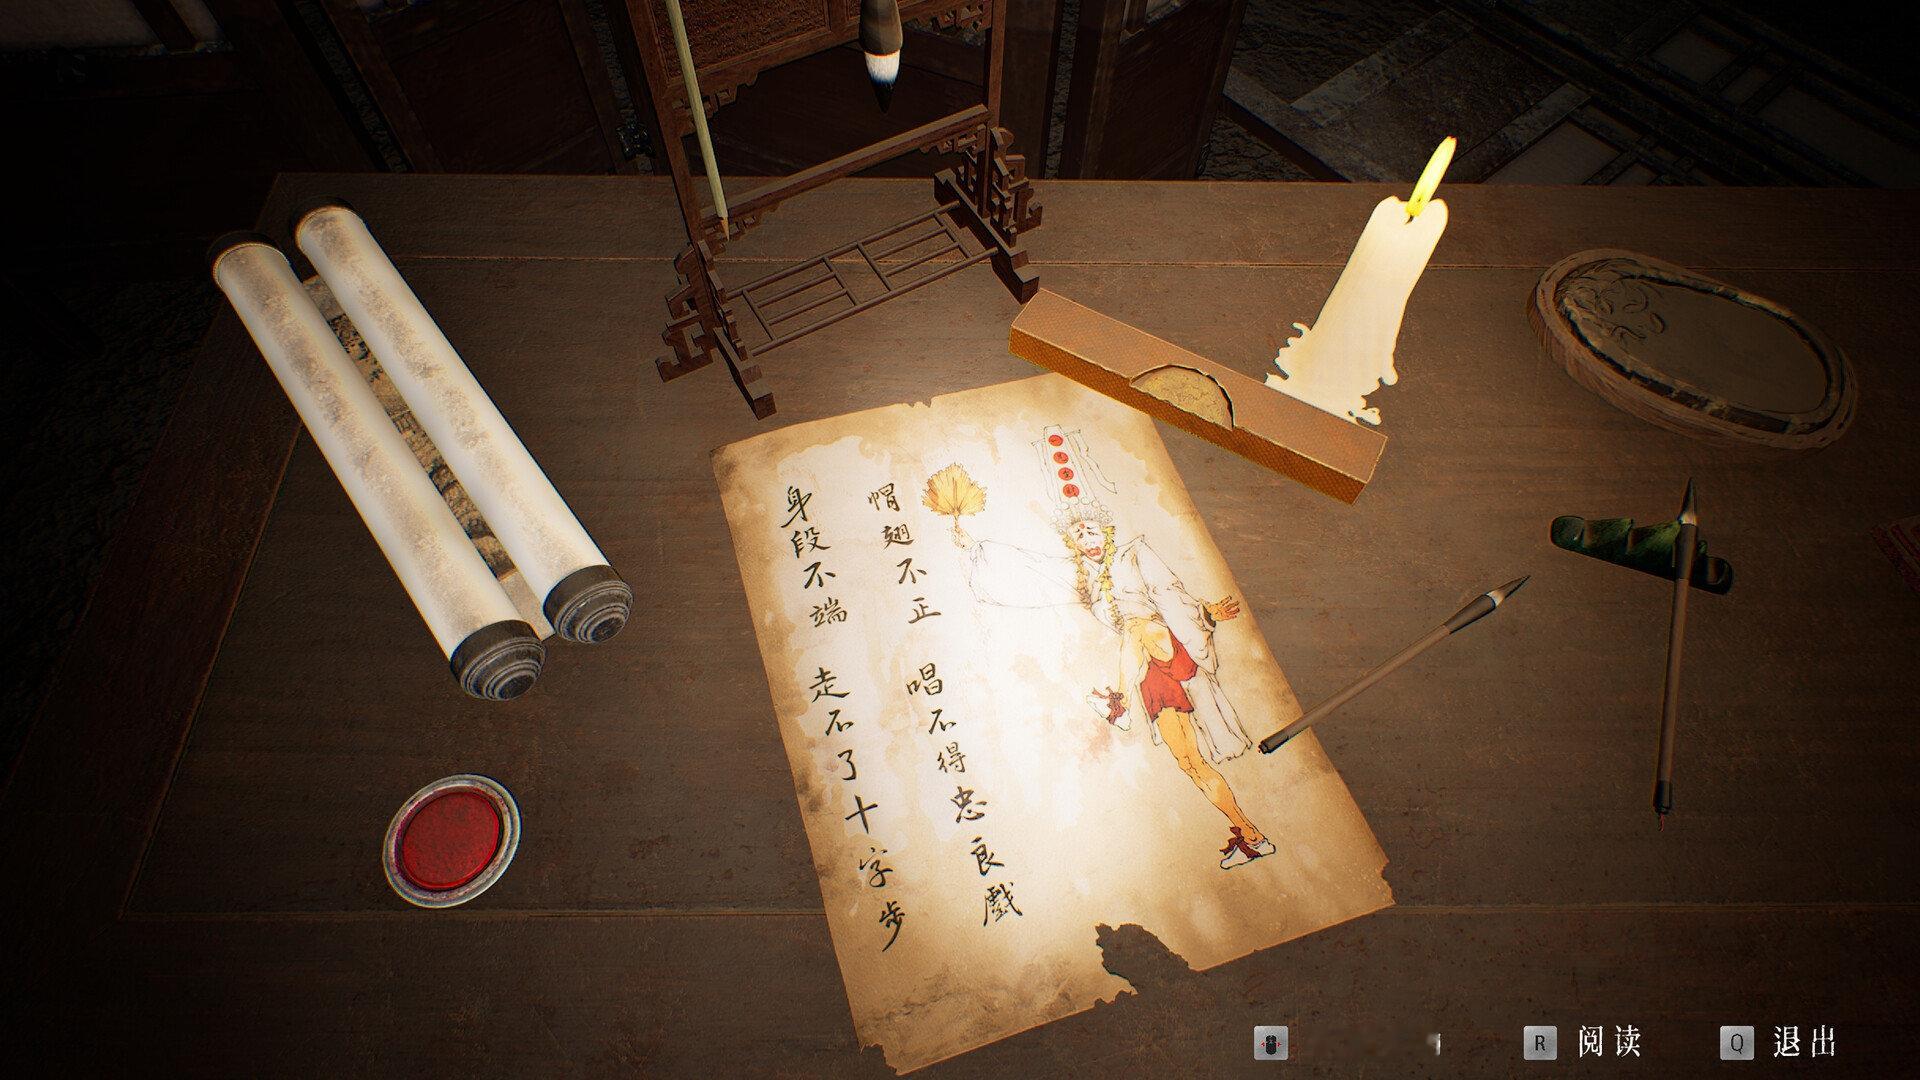 帽翅不正 唱不得忠良戲
身段不端 走不了十字步
R 阅读
Q 退出